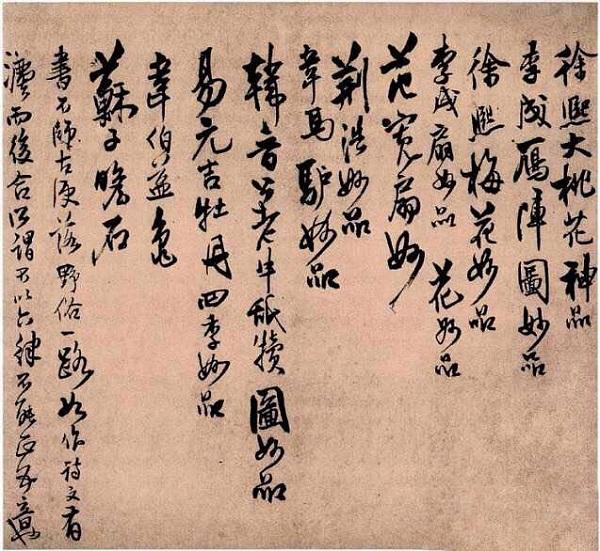 徐熙大桃花神品
李成鴈陣圖妙品
徐熙梅花妙品
李成扇妙品 花妙品
范寬扇妙
荆浩妙品
韋馬驢妙品
韓晉公老牛舐犢圖妙品
易元吉牡丹四季妙品
韋伯益龜
蘇子瞻石
書不師古便落野俗一路如作詩文有
灋而後合所謂不以六律不能正五音也